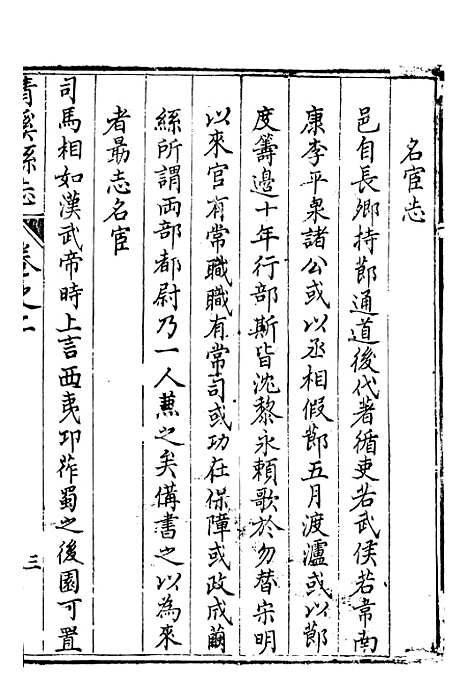 名宦志
邑自長卿持節通道後代著循吏若武侯若韋南
康李平泉諸公或以丞相假節五月渡瀘或以節
度籌邊十年行部斯皆沈黎永頼歌於勿替宋明
以來官有常職職有常司或功在保障或政成繭
絲所謂両部都尉乃一人蒹之矣備書之以為來
者朂志名宦
司馬相如漢武帝時上言西夷卭莋蜀之後園可置
清溪縣志
卷之二
三